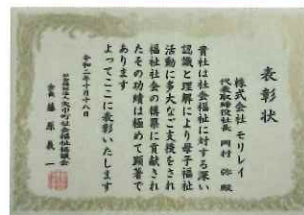 表彰状
株式会社 モリレイ
代表取締役社長 岡村 弥 殿
貴社は社会福祉に対する深い
認識と理解により母子福祉
活動に多大なご支援をされ
福祉社会の構築に貢献され
たその功績は極めて顕著で
あります
よってここに表彰いたします
令和二年十月十八日
社会福祉法人 矢巾町社会福祉協議会
会長 藤原義一